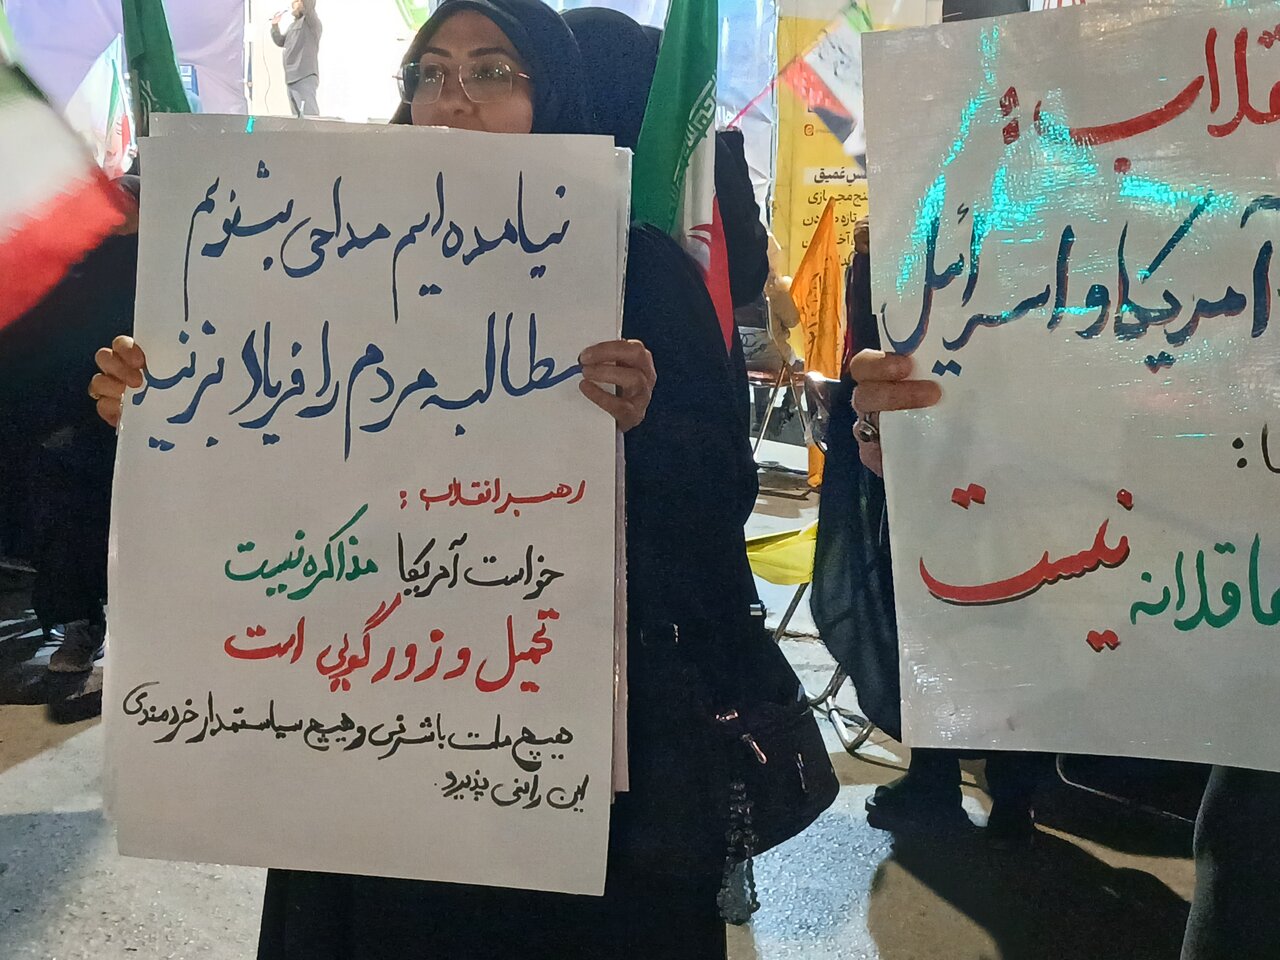 نیامده ایم مداحی بشنویم
مطالبه مردم را فریاد بزنید
رهبر انقلاب :
خواست آمریکا مذاکره نیست
تحمیل و زورگویی است
هیچ ملت باشرفی و هیچ سیاستمدار خردمندی
این را نمی پذیرد.
آمریکا و اسرائیل
عاقلانه نیست
عمیق